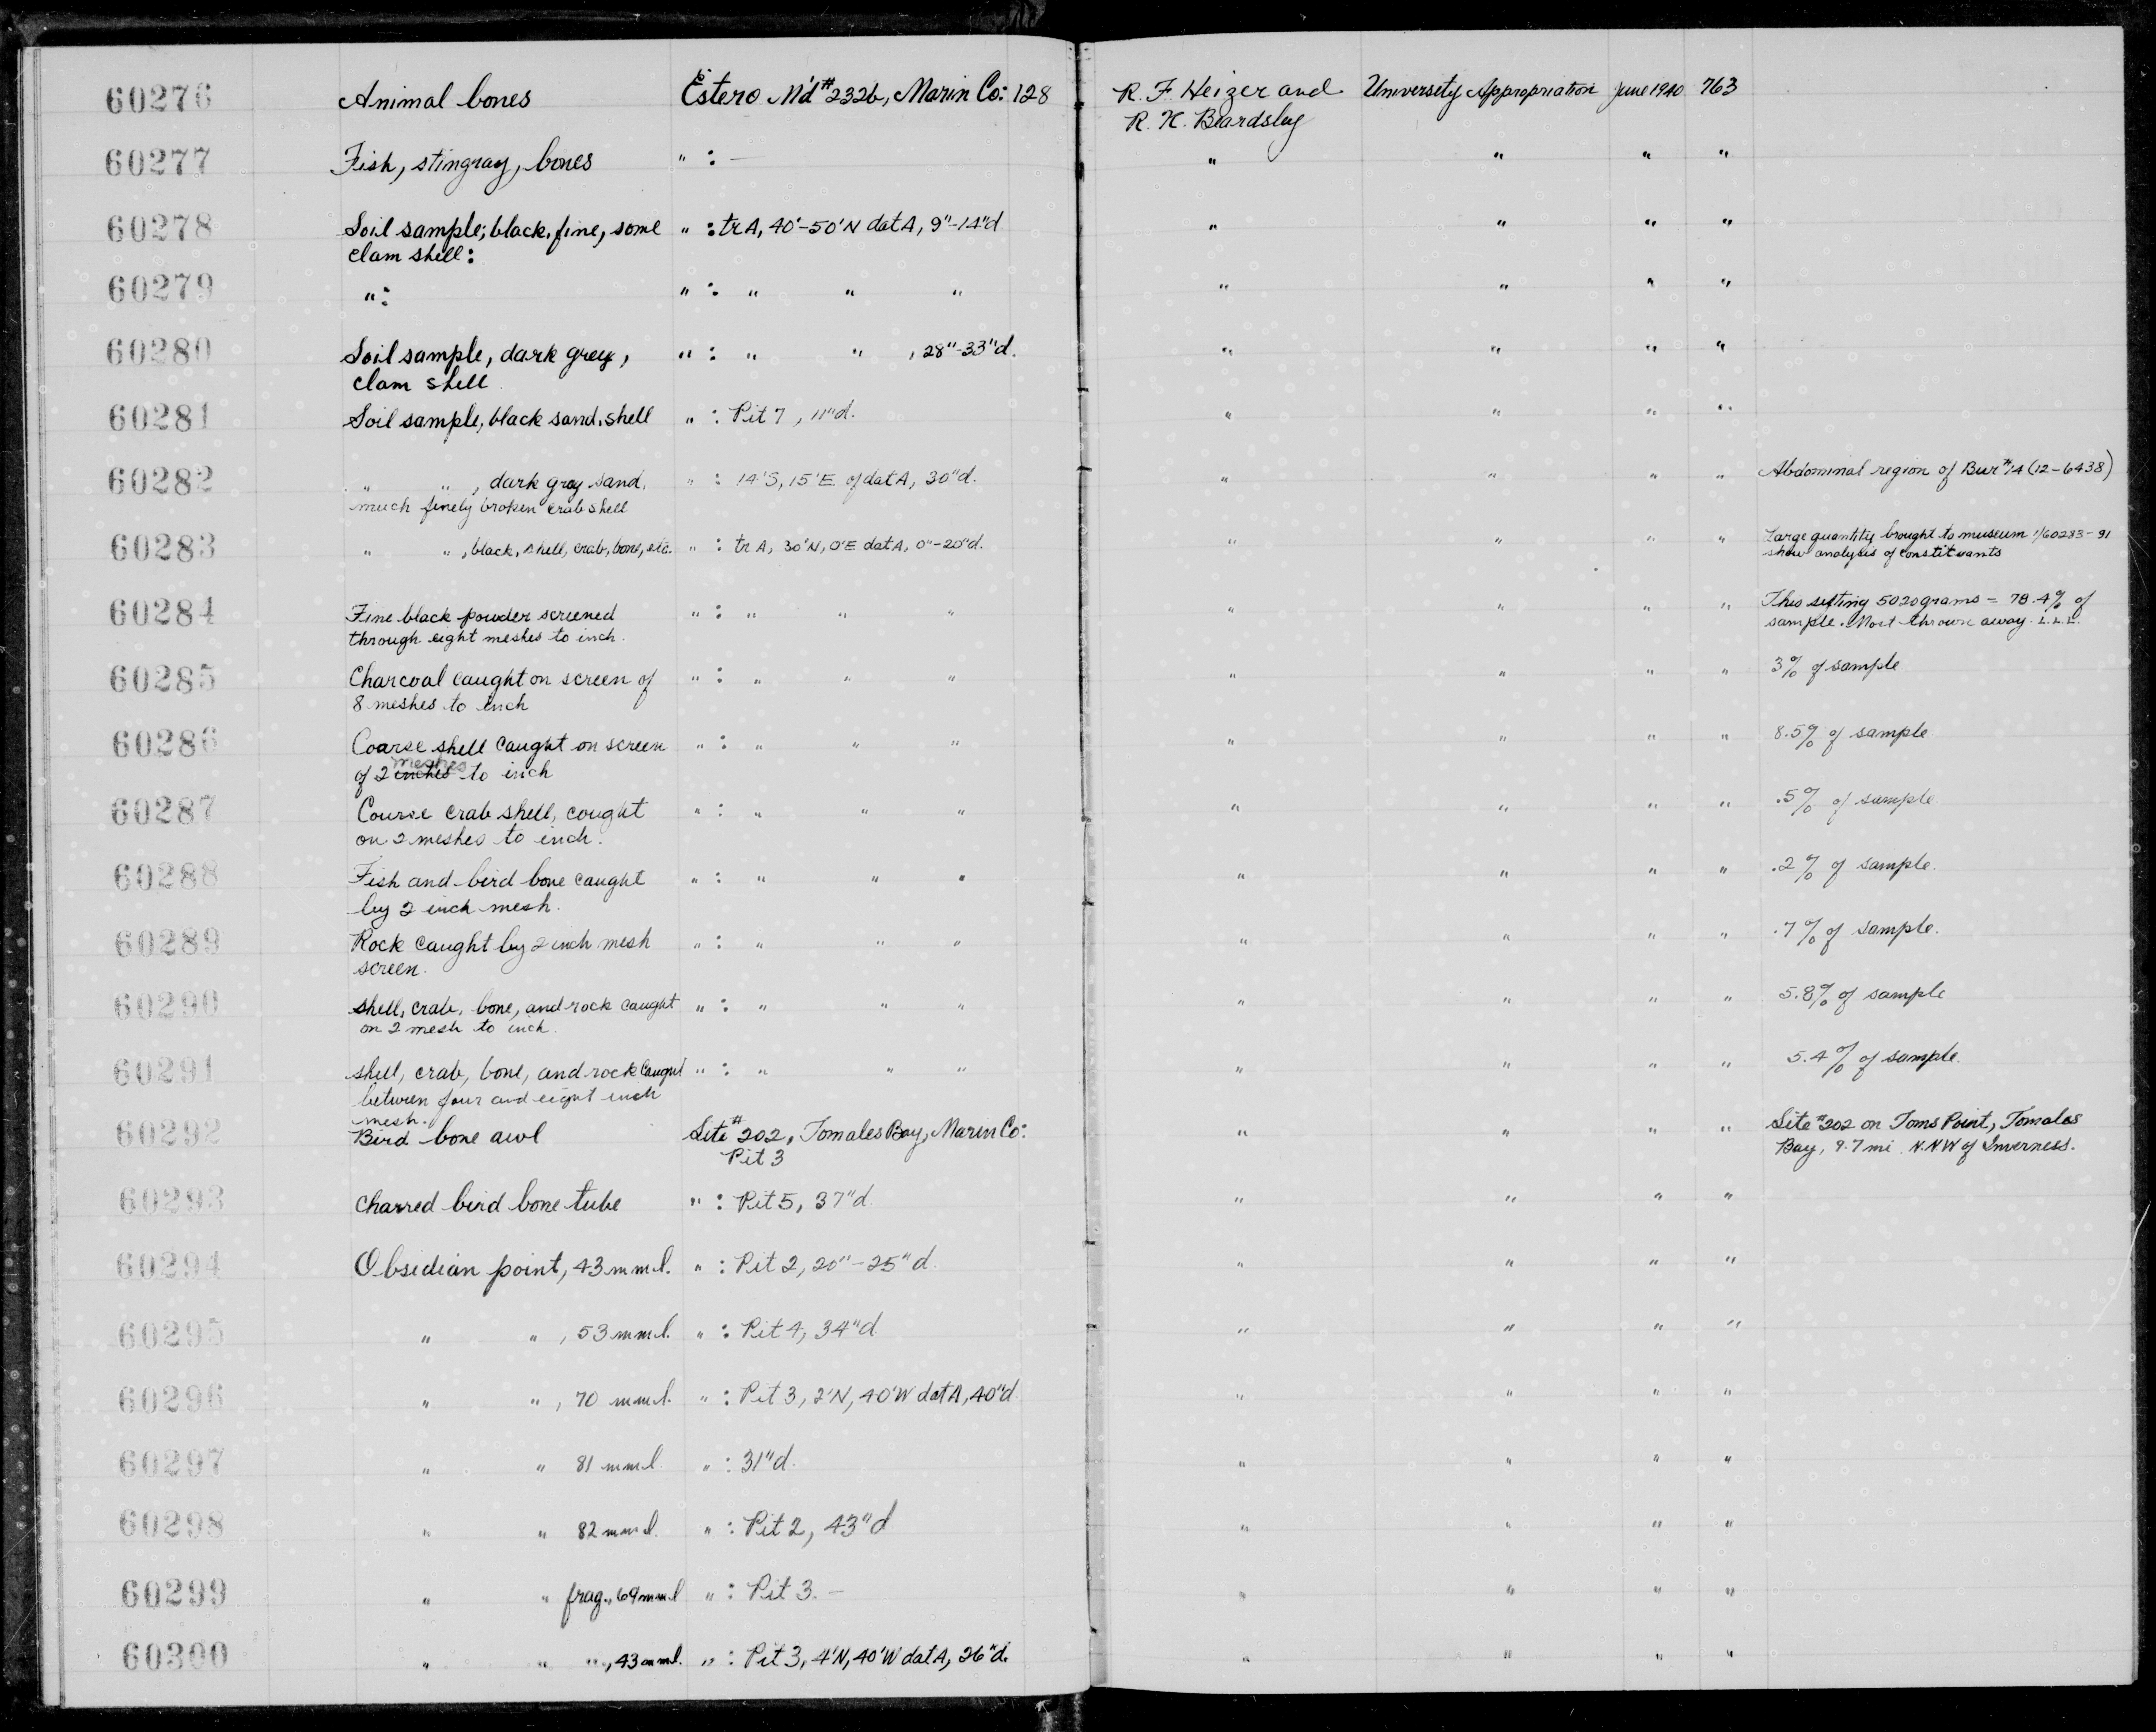 60276 Animal bones Estero M'd #232b, Marin Co: 128 R. F. Heizer and University Appropriation June 1940 763
R. K. Beardsley
60277 Fish, stingray, bones " : — " " " "
60278 Soil sample; black, fine, some " : tr A, 40'-50'N dat A, 9"-14"d " " " "
clam shell:
60279 " : " : " " " " " " "
60280 Soil sample, dark grey, " : " " , 28"-33"d. " " " "
clam shell
60281 Soil sample, black sand, shell " : Pit 7, 11"d. " " " "
60282 " " , dark gray sand, " : 14'S, 15'E of dat A, 30"d. " " " " Abdominal region of Bur #14 (12-6438)
much finely broken crab shell
60283 " " , black, shell, crab, bone, etc. " : tr A, 30'N, 0'E dat A, 0"-20"d. " " " " Large quantity brought to museum 1/60283-91
show analysis of constituants
60284 Fine black powder screened " : " " " " " " " This sifting 5020 grams = 78.4% of
through eight meshes to inch. sample. Most thrown away. L.L.L.
60285 Charcoal caught on screen of " : " " " " " " " 3% of sample
8 meshes to inch
60286 Coarse shell caught on screen " : " " " " " " " 8.5% of sample
of 2 inches meshes to inch
60287 Course crab shell, cought " : " " " " " " " .5% of sample
on 2 meshes to inch.
60288 Fish and bird bone caught " : " " " " " " " .2% of sample.
by 2 inch mesh.
60289 Rock caught by 2 inch mesh " : " " " " " " " .7% of sample.
screen.
60290 shell, crab, bone, and rock caught " : " " " " " " " 5.8% of sample
on 2 mesh to inch.
60291 shell, crab, bone, and rock caught " : " " " " " " " 5.4% of sample.
between four and eight inch
mesh.
60292 Bird bone awl Site #202, Tomales Bay, Marin Co: " " " " Site #202 on Toms Point, Tomales
Pit 3 Bay, 9.7 mi. N.N.W of Inverness.
60293 charred bird bone tube " : Pit 5, 37"d. " " " "
60294 Obsidian point, 43 mm l. " : Pit 2, 20"-25"d. " " " "
60295 " " , 53 mm l. " : Pit 4, 34"d. " " " "
60296 " " , 70 mm l. " : Pit 3, 2'N, 40'W dat A, 40"d " " " "
60297 " " 81 mm l. " : 31"d. " " " "
60298 " " 82 mm l. " : Pit 2, 43"d " " " "
60299 " " frag., 69 mm l " : Pit 3. — " " " "
60300 " " " , 43 mm l. " : Pit 3, 4'N, 40'W dat A, 26"d. " " " "